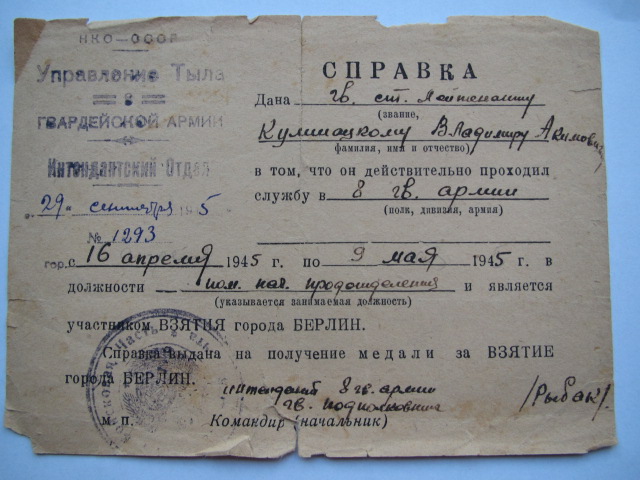 НКО—СССР
Управление Тыла
8
ГВАРДЕЙСКОЙ АРМИИ
Интендантский Отдел
„29" сентября 1945
№ 1293
гор.
СПРАВКА
Дана гв. ст. Лейтенанту
(звание,
Владимиру Акимовичу
фамилия, имя и отчество)
в том, что он действительно проходил
службу в 8 гв. армии
(полк, дивизия, армия)
с 16 апреля 1945 г. по 9 мая 1945 г. в
должности пом. нач. продотделения и является
(указывается занимаемая должность)
участником ВЗЯТИЯ города БЕРЛИН.
Справка выдана на получение медали за ВЗЯТИЕ
города БЕРЛИН.
интендант 8 гв. армии
гв. подполковник
/Рыбак/
м. п. Командир (начальник)